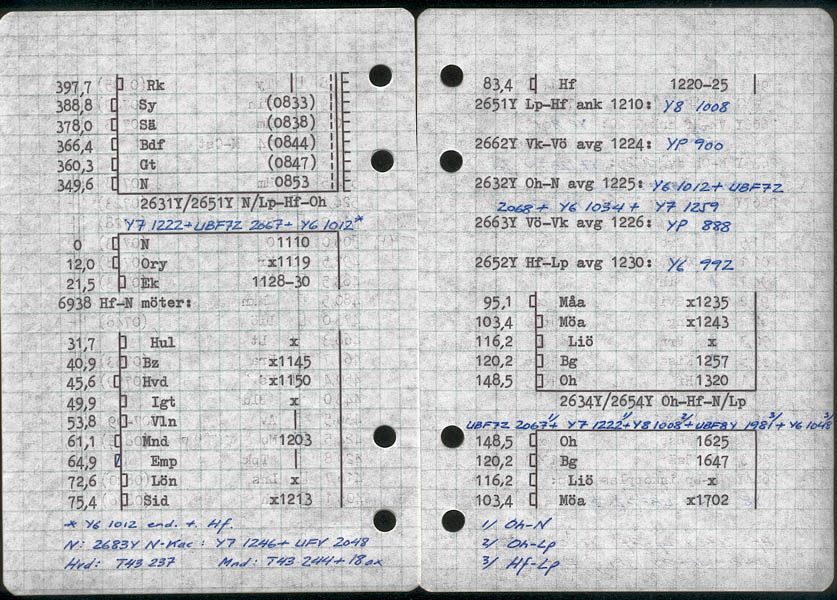 397,7 Rk |
388,8 Sy (0833)
378,0 Sä (0838)
366,4 Bdf (0844)
360,3 Gt (0847)
349,6 N 0853
2631Y/2651Y N/Lp-Hf-Oh
Y7 1222+UBF7Z 2067+ Y6 1012*
0 N 1110
12,0 Ory x1119
21,5 Ek 1128-30
6938 Hf-N möter:
31,7 Hul x
40,9 Bz x1145
45,6 Hvd x1150
49,9 Igt x
53,8 Vln |
61,1 Mnd 1203
64,9 Emp |
72,6 Lön x
75,4 Sid x1213
* Y6 1012 end. t. Hf.
N: 2683Y N-Kac: Y7 1246+ UFV 2048
Hvd: T43 237 Mnd: T43 244+18ax
83,4 Hf 1220-25
2651Y Lp-Hf ank 1210: Y8 1008
2662Y Vk-Vö avg 1224: YP 900
2632Y Oh-N avg 1225: Y6 1012+ UBF7Z
2068+ Y6 1034+ Y7 1259
2663Y Vö-Vk avg 1226: YP 888
2652Y Hf-Lp avg 1230: Y6 992
95,1 Måa x1235
103,4 Möa x1243
116,2 Liö x
120,2 Bg 1257
148,5 Oh 1320
2634Y/2654Y Oh-Hf-N/Lp
UBF7Z 2067 1/+ Y7 1222 1/+Y8 1008 3/+UBF8Y 1981 3/+ Y6 1048 3/
148,5 Oh 1625
120,2 Bg 1647
116,2 Liö x
103,4 Möa x1702
1/ Oh-N
2/ Oh-Lp
3/ Hf-Lp